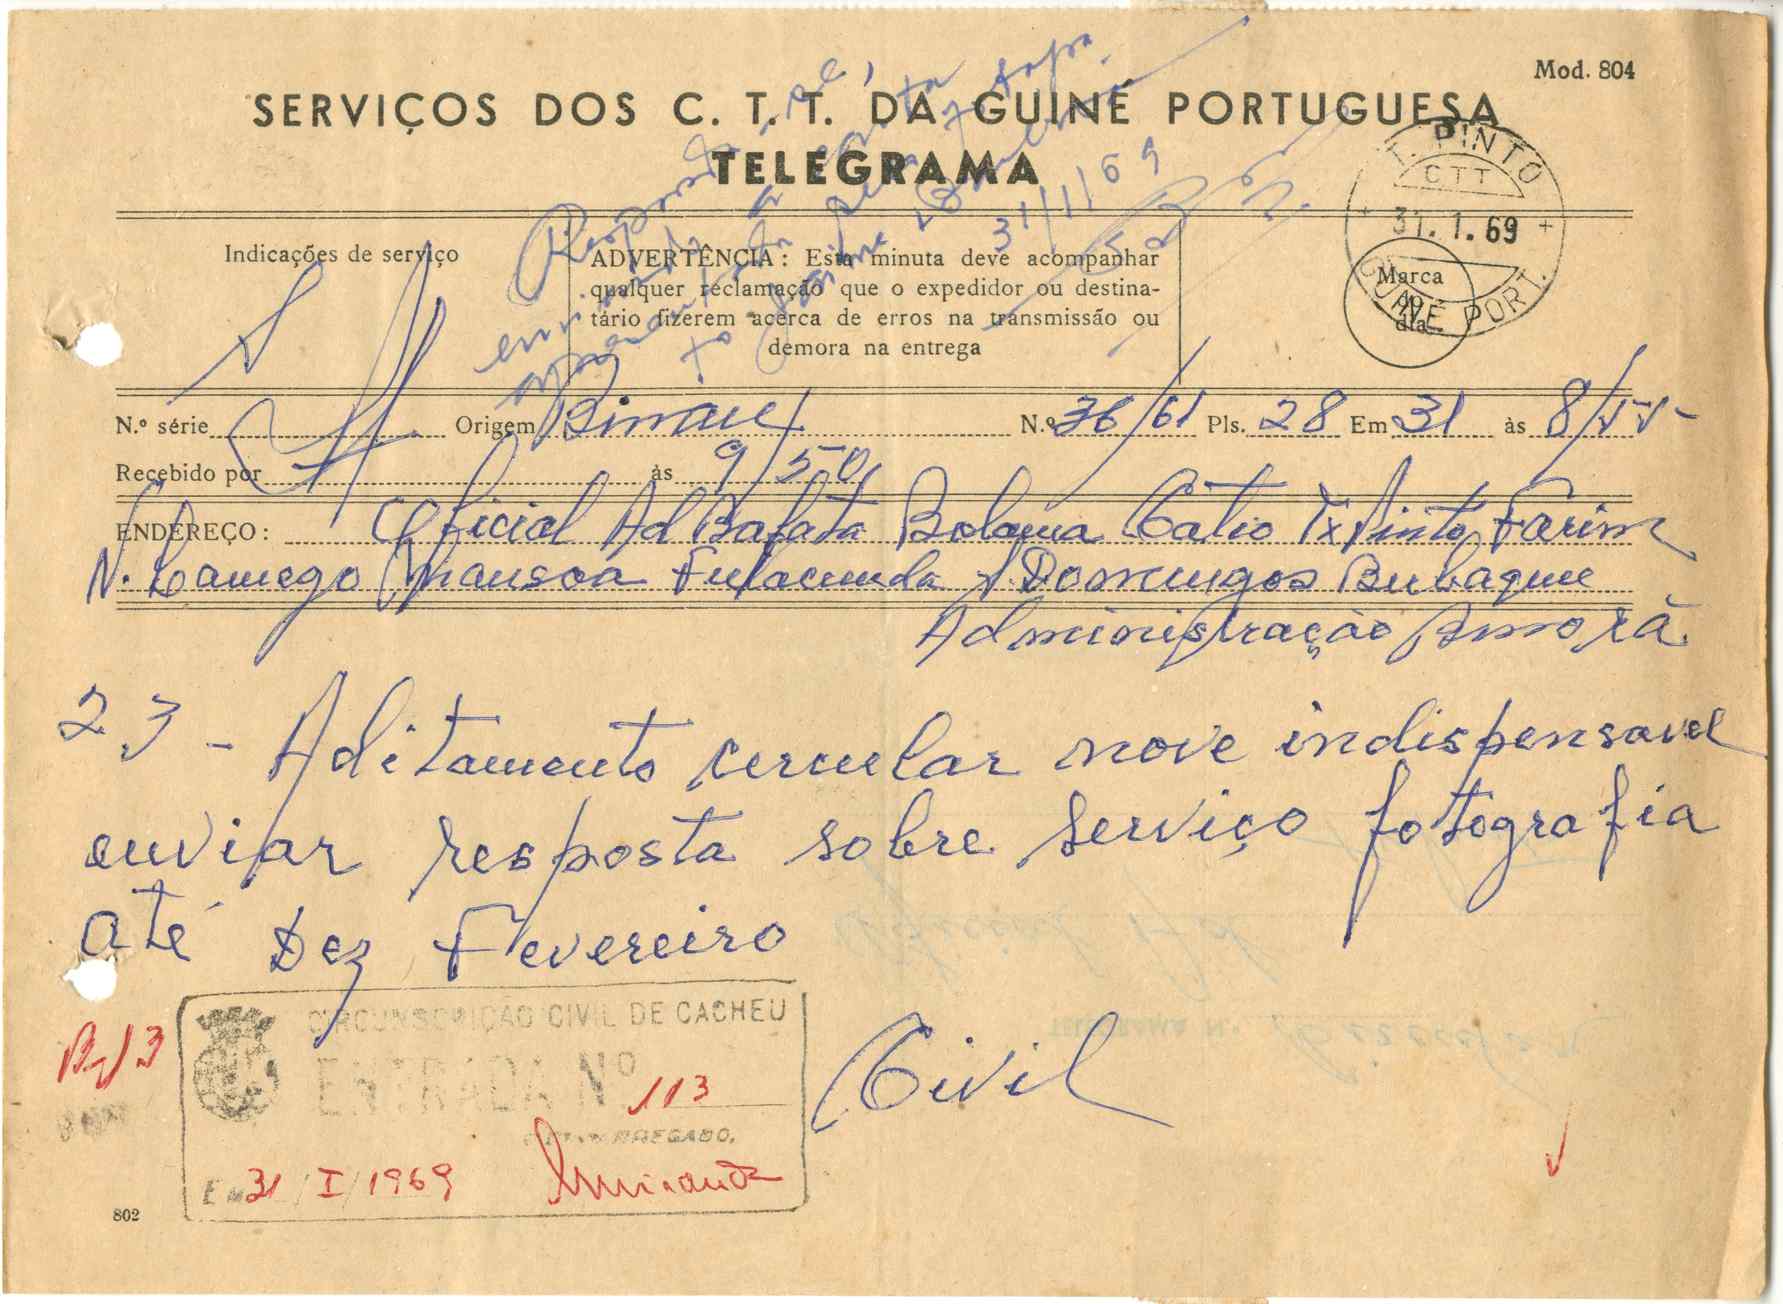 Mod. 804
SERVIÇOS DOS C. T. T. DA GUINÉ PORTUGUESA
TELEGRAMA
T. PINTO
CTT
31.1.69
GUINÉ PORT.
Marca
do
dia
Indicações de serviço
ADVERTÊNCIA: Esta minuta deve acompanhar
qualquer reclamação que o expedidor ou destina-
tário fizerem acerca de erros na transmissão ou
demora na entrega
31/1/69
N.º série Origem Bissau N.º 36/61 Pls. 28 Em 31 às 8/55
Recebido por às 9/50
ENDEREÇO: Oficial Ad Bafata Bolama Catio Tx Pinto Farim
N. Lamego Mansoa Fulacunda S Domingos Bubaque
Administração
23 - Aditamento cercular nove indispensavel
enviar resposta sobre serviço fotografia
até Dez Fevereiro
Civil
CIRCUNSCRIÇÃO CIVIL DE CACHEU
ENTRADA Nº 113
Em 31/I/1969
B-/3
TELEGRAMA N.º
802